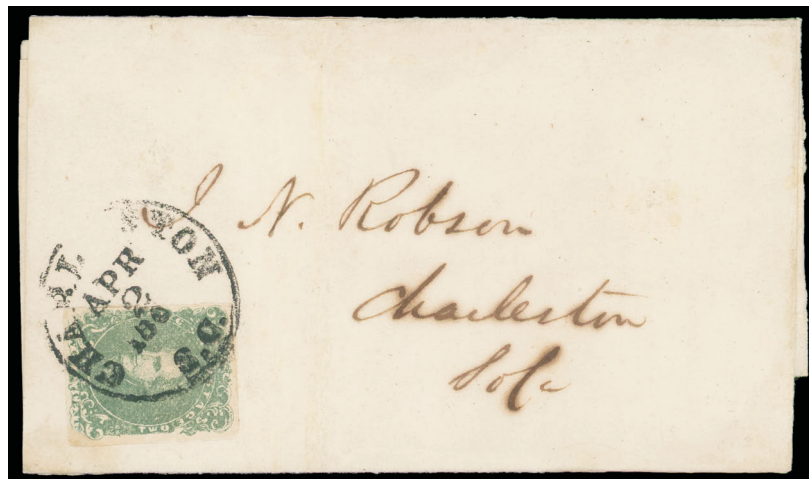 J N. Robson
Charleston
So Ca
CHARLESTON S.C.
APR
TWO